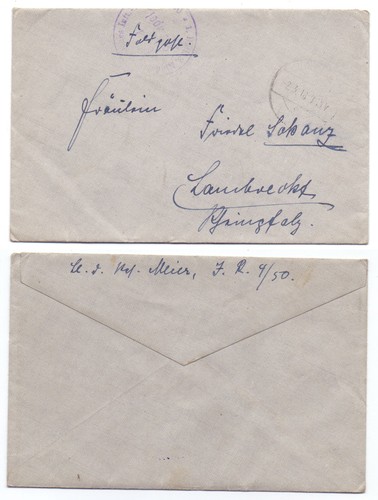 Feldpost.
Fräulein
Friedel Schanz
Lambrecht
Rheinpfalz.
Lt. d. Res. Meier, I. R. 9/50.